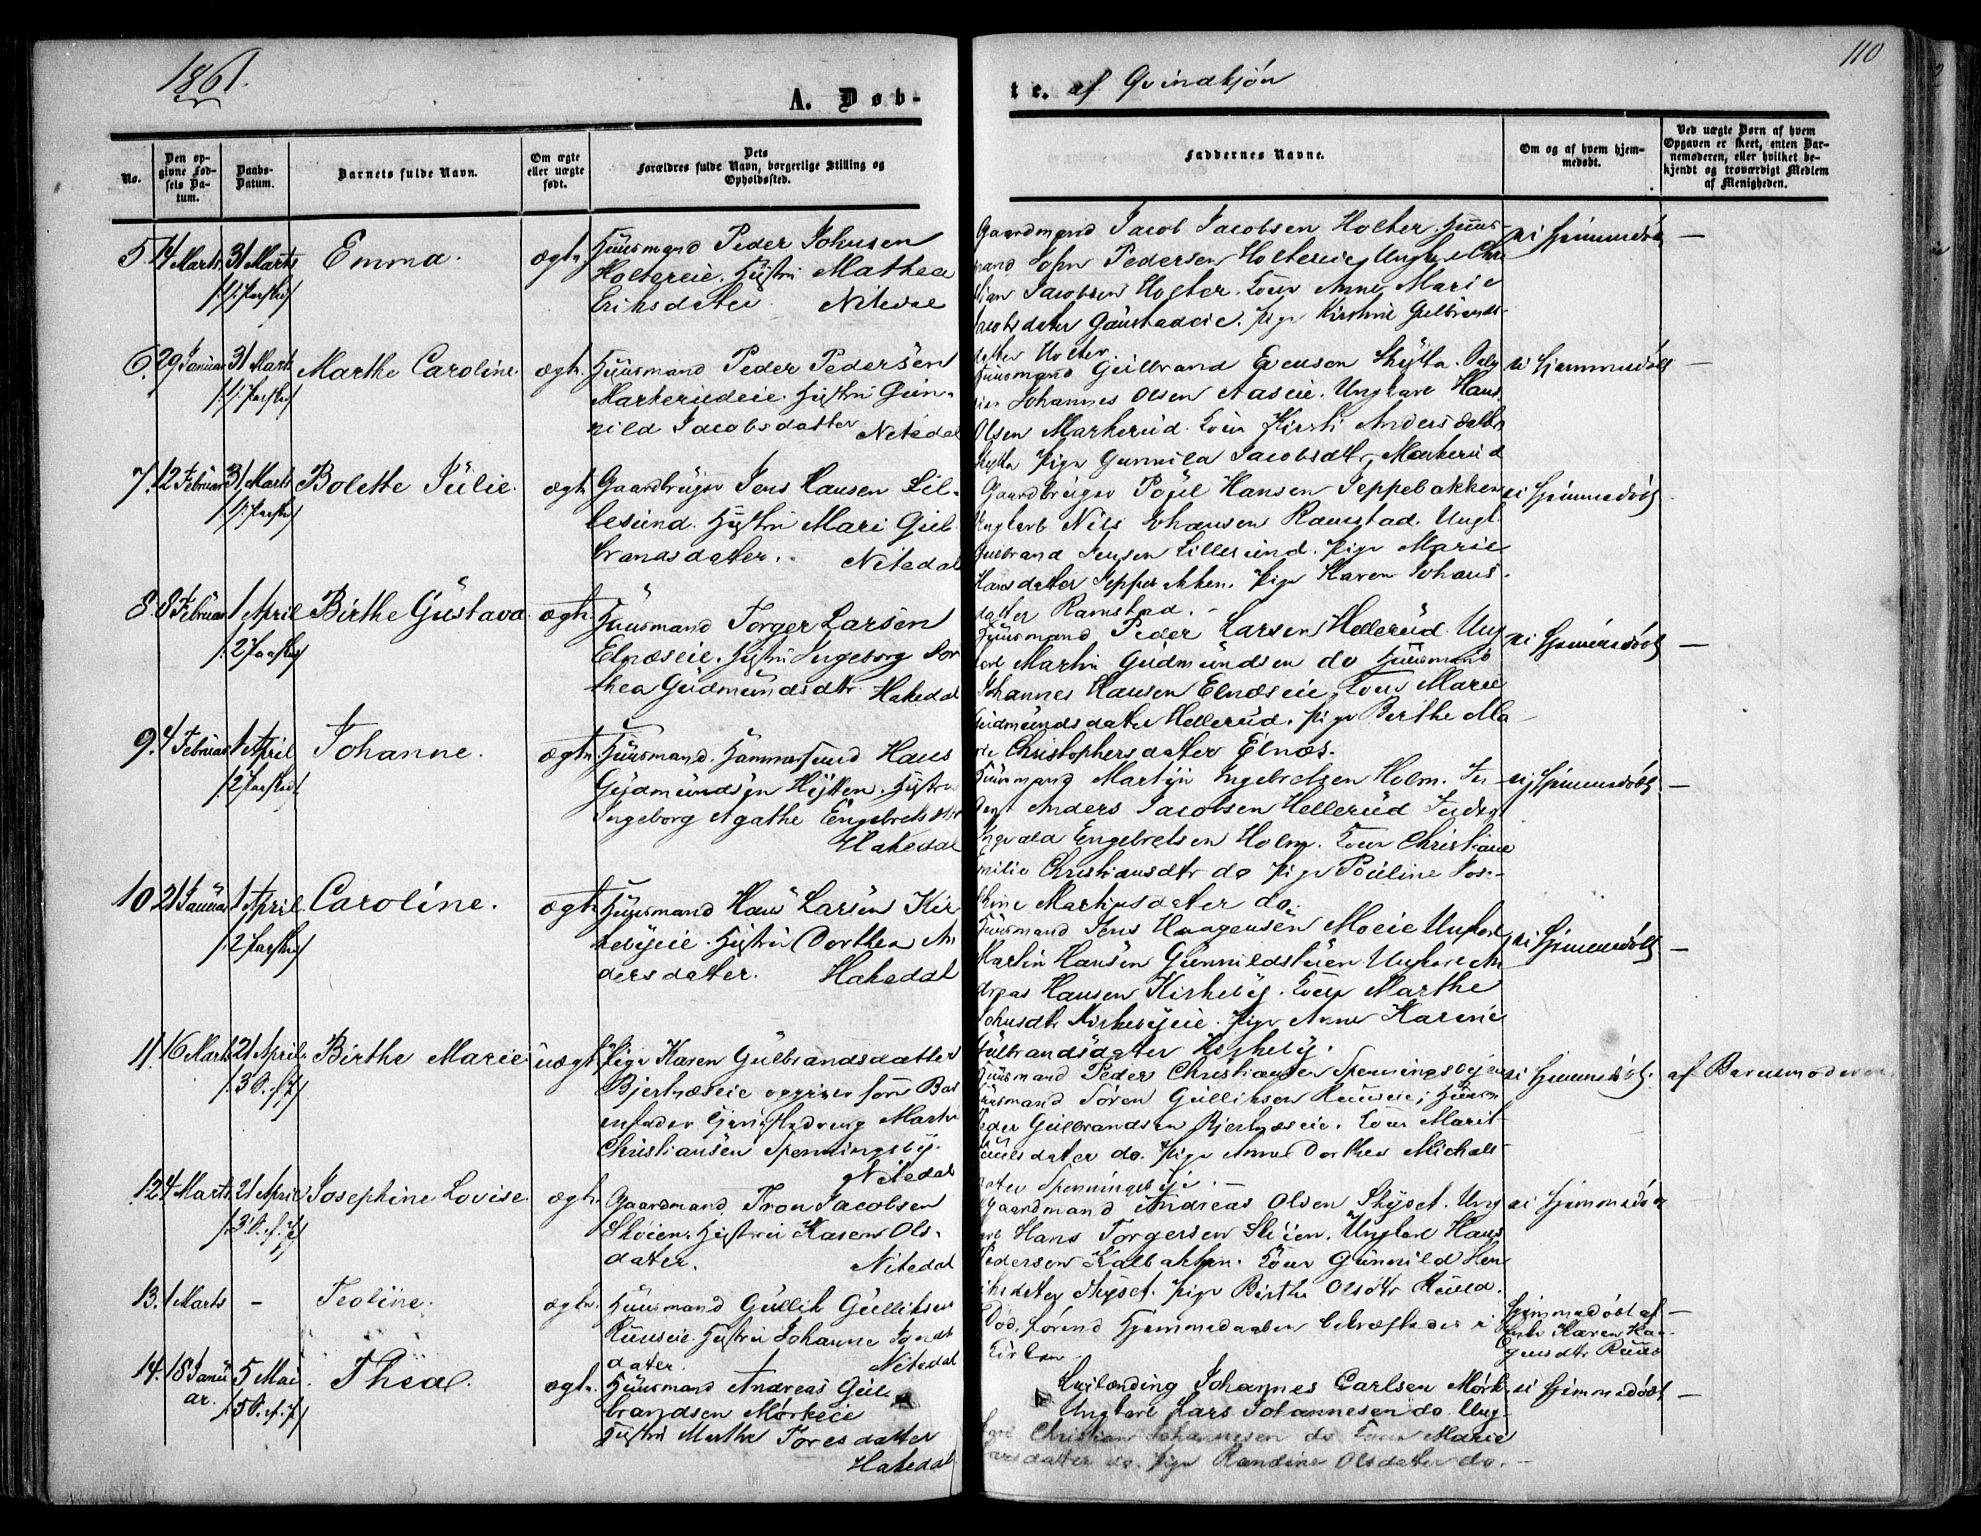 1861.
110
A. Døb-
te. af Qvindkjøn
No.
Den op-
givne Fød-
sels Da-
tum.
Daabs-
Datum.
Barnets fulde Navn.
Om ægte
eller uægte
født.
Dets
Forældres fulde Navn, borgerlige Stilling og
Opholdssted.
Faddernes Navne.
Om og af hvem hjem-
medøbt.
Ved uægte Børn af hvem
Opgaven er skeet, enten Bar-
nemoderen, eller hvilket be-
kjendt og troværdigt Medlem
af Menigheden.
5. 14 Marts 31 Marts Emma. ægte
Huusmand Peder Johnsen
Holtereie. Hustru Mathea
Eriksdatter. Nitedal
Gaardmand Jacob Jacobsen Holter. Huus-
mand John Pedersen Holtereie, Ungk. Chri
stian Jacobsen Holter. Kone Anne Marie
Jacobsdatter Gaustadeie. Pige Kirstine Gulbrands-
datter Holter.
ei Hjemmedøbt —
6. 29 Januar 31 Marts Marthe Caroline. ægte.
Huusmand Peder Pedersen
Markerudeie. Hustru Gun-
nild Jacobsdatter Nitedal
Huusmand Gulbrand Evensen Skytta.
Johannes Olsen Aaseie. Ungkarl Hans
Olsen Markerud. Kone Kirsti Andersdatter
Skytta Pige Gunnild Jacobsdtr. Markerud
ei Hjemmedøbt —
7. 12 Februar 31 Marts Bolette Julie. ægte
Gaardbruger Jens Hansen Lil-
lesund. Hustru Mari Gul-
brandsdatter. Nitedal
Gaardbruger Poul Hansen Jeppebakken
Ungkarl Nils Johansen Ramstad. Ungk.
Gulbrand Jensen Lillesund. Pige Marie
Hansdatter Jeppebakken. Pige Karen Johans-
datter Ramstad. —
ei Hjemmedøbt
8. 8 Februar 1 April Birthe Gustava. ægte.
Huusmand Torger Larsen
Elnæseie. Hustru Ingeborg Dor
thea Gudmundsdtr. Hakedal
Huusmand Peder Larsen Hellerud. Ung
karl Martin Gudmundsen do Huusmand
Johannes Hansen Elnæseie, Kone Marie
Gudmundsdatter Hellerud. Pige Berthe Ma-
rie Christophersdatter Elnæs.
ei Hjemmedøbt —
9. 4 Februar 1 April Johanne. ægte
Huusmand Hans
Gudmundsen Hytten. Hustru
Ingeborg Agathe Engebretsdtr
Hakedal
Huusmand Martin Ingebretsen Holm. In-
derst Anders Jacobsen Hellerud Inderst
Ingvald Engebretsen Holm. Kone Christiane
Emilie Christiansdtr do Pige Pouline Jose-
phine Martinsdatter do.
ei Hjemmedøbt —
10 21 Januar 1 April Caroline. ægte
Huusmand Hans Larsen Kir
kebyeie. Hustru Dorthea An
dersdatter. Hakedal
Huusmand Jens Haagensen Moeie Ungkarl
Martin Hansen Gunnildstuen. Ungkarl An
dreas Hansen Kirkeby. Kone Marthe
Johnsdtr Kirkebyeie. Pige Anne Karine
Gulbrandsdatter Kirkeby.
ei Hjemmedøbt —
11. 16 Marts 21 April. Birthe Marie uægte
Pige Karen Gulbrandsdatter
Bjertnæseie opgiver som Bar
nefader Martin
Christiansen Spenningsby.
Nitedal
Huusmand Peder Christiansen Spenningsbyeie
Huusmand Søren Gulliksen Ruuseie, Huusm.
Peder Gulbrandsen Bjertnæseie. Kone Marit
datter do. Pige Anne Dorthea Michels-
datter Spenningsbyeie. —
ei Hjemmedøbt. af Barnemoderen
12. 4 Marts 21 April Josephine Lovise. ægte.
Gaardmand Tron Jacobsen
Skøien. Hustru Karen Ols-
datter. Nitedal
Gaardmand Andreas Olsen Skyset. Ung
karl Hans Torgersen Skøien. Ungkarl Hans
Pedersen Kalbakken. Kone Gunnild Hen
riksdatter Skyset. Pige Birthe Olsdtr Ruud.
ei Hjemmedøbt
13. 1 Marts — Teoline. ægte.
Huusmand Gullik Gulliksen
Ruuseie. Hustru Johanne
datter. Nitedal
Død, førend Hjemmedaaben bekræftedes i
Kirken
Hjemmedøbt af —
Karen Haa-
gensdtr Ruus
14. 18 Janu
ar. 5 Mai Thea. ægte.
Huusmand Andreas Gul-
brandsen Mørkeie
Hustru Marthe Toresdatter
Hakedal
Johannes Carlsen Mørk
Ungkarl Lars Johannesen do. Ung-
karl Christian Johannesen do Kone Marie
Larsdatter do. Pige Randine Olsdatter do. —
ei Hjemmedøbt —